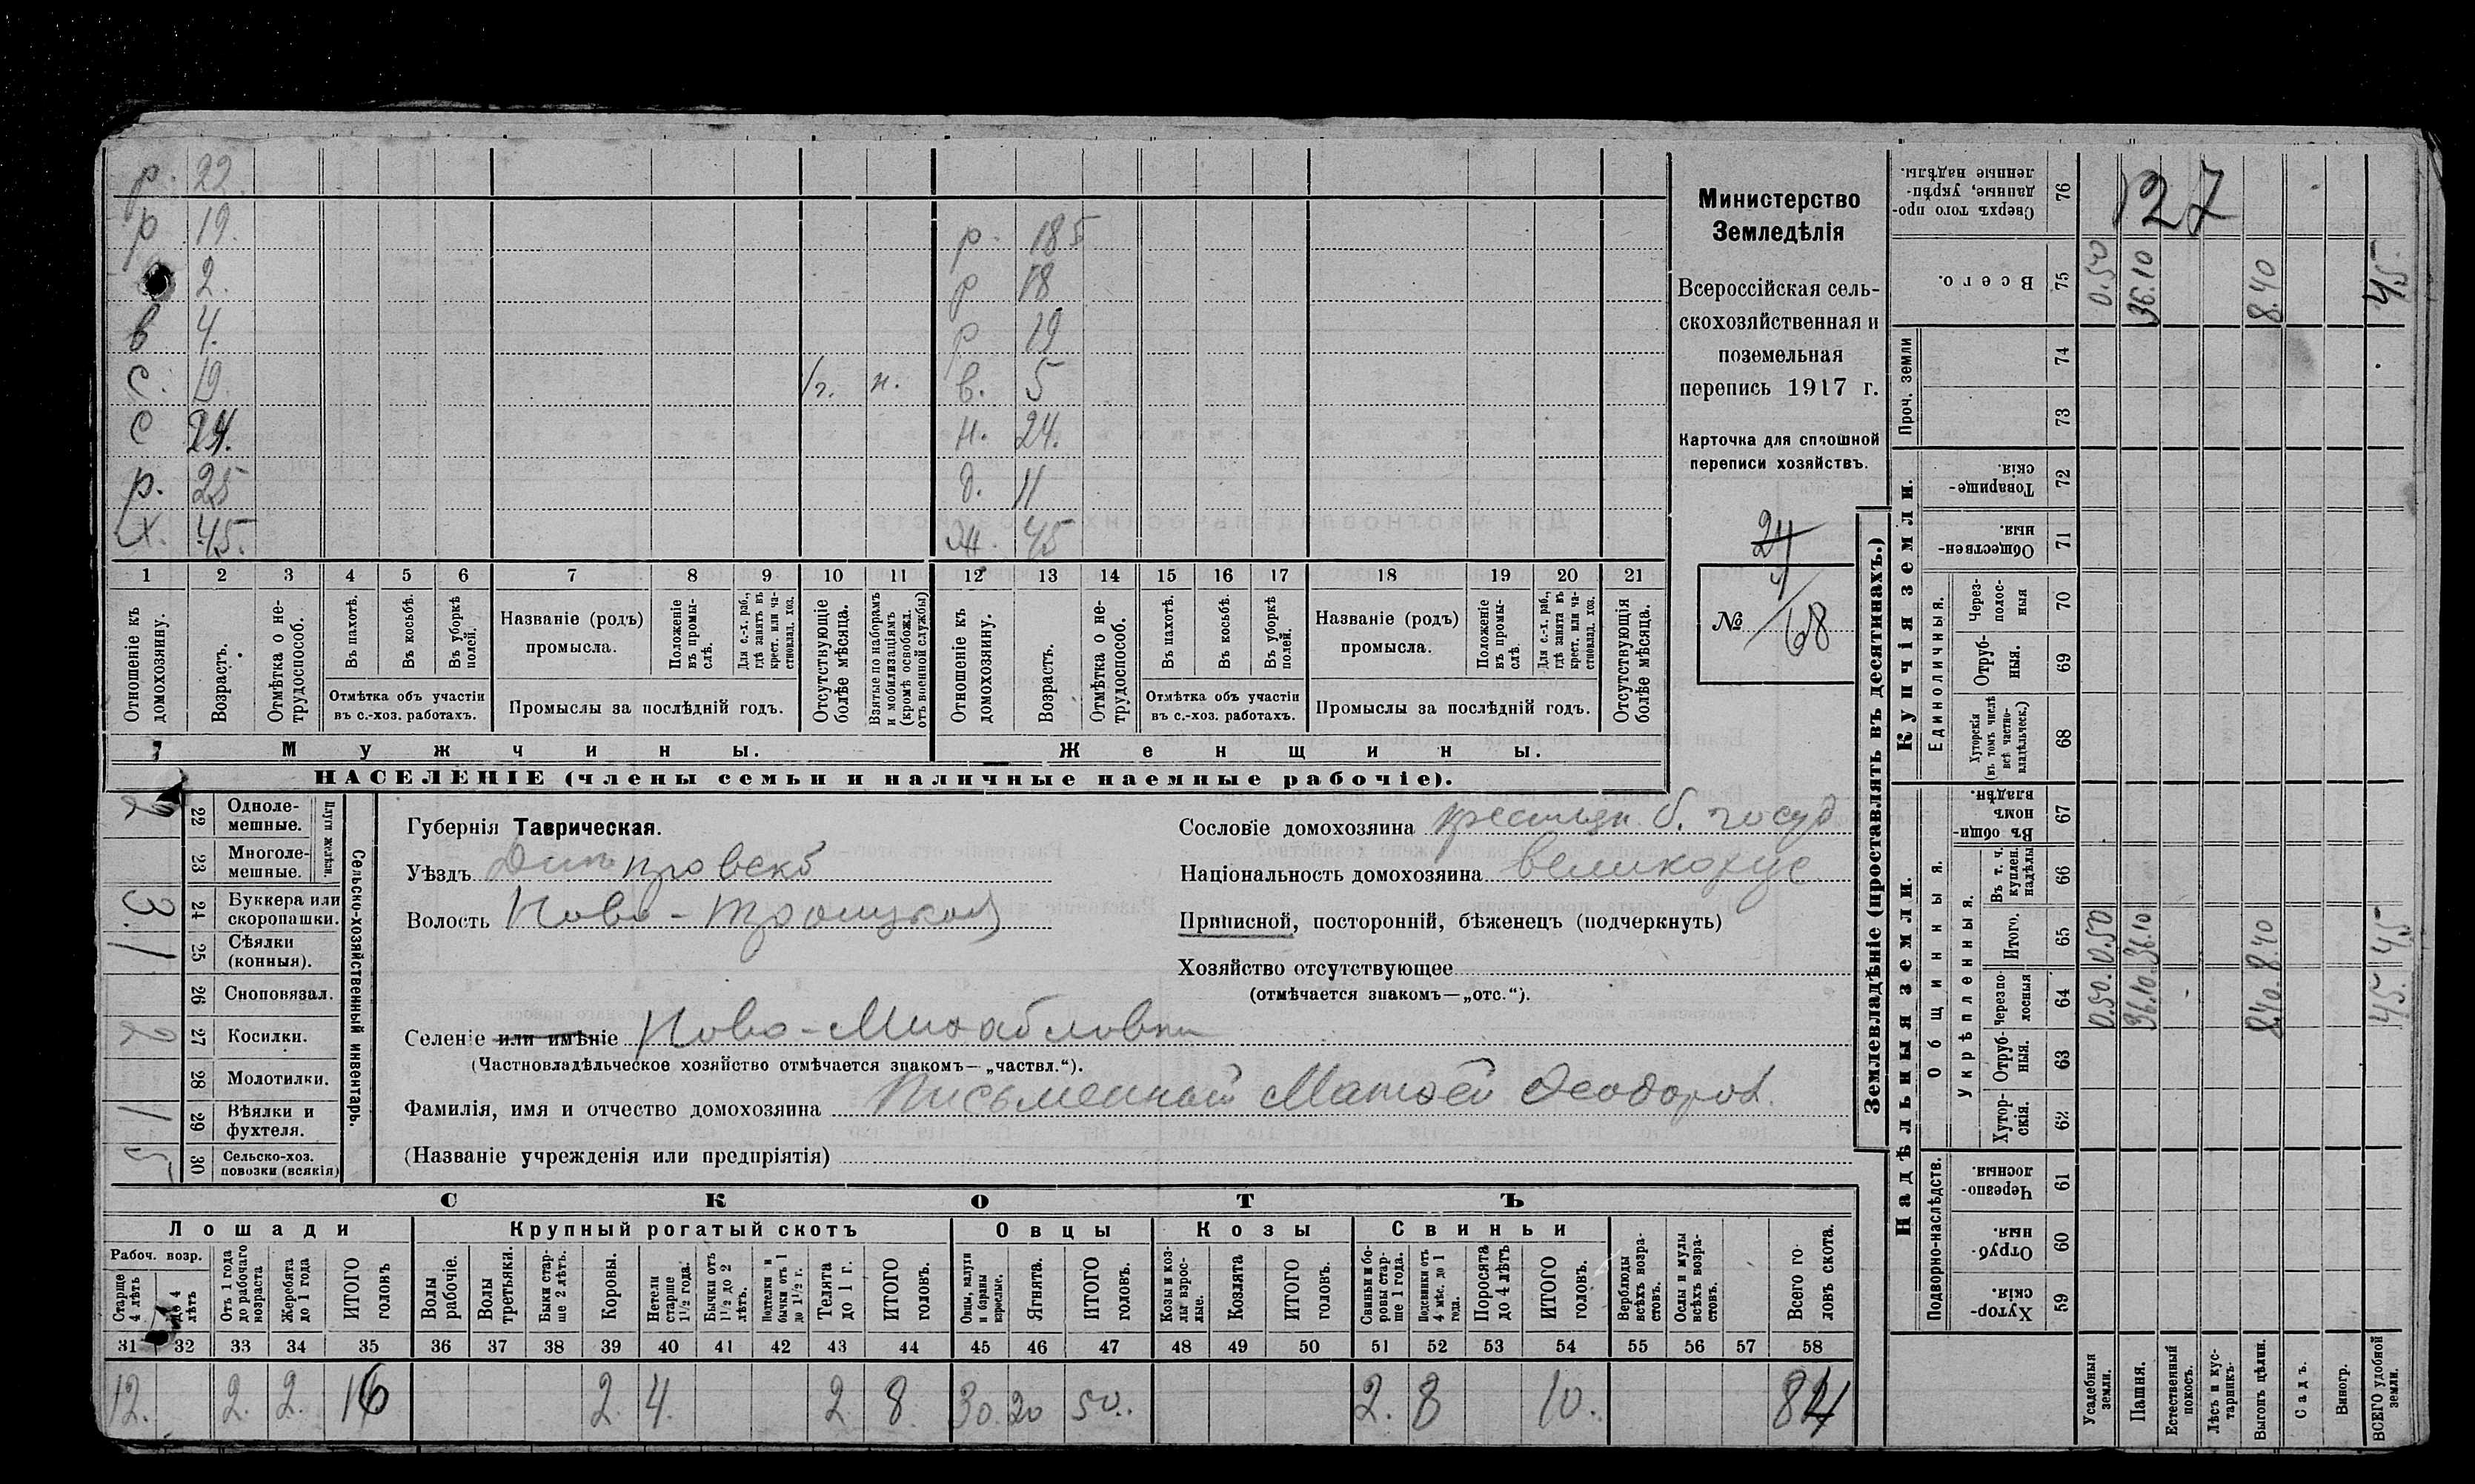 р. 22.
р 19. р. 18 5
2. р 18
в 4. р 19
с. 19. 1/г. н. в. 5
с 24. н. 24.
р. 25 д. 11
х. 45. ж. 45
1 2 3 4 5 6 7 8 9 10 11 12 13 14 15 16 17 18 19 20 21
Отношеніе къ домохозяину.
Возрастъ.
Отмѣтка о нетрудоспособ.
Въ пахотѣ.
Въ косьбѣ.
Въ уборкѣ полей.
Отмѣтка объ участіи
въ с.-хоз. работахъ.
Названіе (родъ)
промысла.
Положеніе въ промыслѣ.
Для с.-х. раб., гдѣ занятъ въ крест. или частновлад. хоз.
Промыслы за послѣдній годъ.
Отсутствующіе болѣе мѣсяца.
Взятые по наборамъ и мобилизаціямъ (кромѣ освобожд. отъ военной службы)
Отношеніе къ домохозяину.
Возрастъ.
Отмѣтка о нетрудоспособ.
Въ пахотѣ.
Въ косьбѣ.
Въ уборкѣ полей.
Отмѣтка объ участіи
въ с.-хоз. работахъ.
Названіе (родъ)
промысла.
Положеніе въ промыслѣ.
Для с.-х. раб., гдѣ занята въ крест. или частновлад. хоз.
Промыслы за послѣдній годъ.
Отсутствующія болѣе мѣсяца.
7 Мужчины. Женщины.
НАСЕЛЕНІЕ (члены семьи и наличные наемные рабочіе).
Министерство
Земледѣлія
Всероссійская сель-
скохозяйственная и
поземельная
перепись 1917 г.
Карточка для сплошной
переписи хозяйствъ.
24
№ 4/68
Сельско-хозяйственный инвентарь.
Плуги желѣзн.
2 22 Одноле-
мешные.
23 Многоле-
мешные.
3. 24 Буккера или
скоропашки.
1 25 Сѣялки
(конныя).
26 Сноповязал.
2 27 Косилки.
28 Молотилки.
1 29 Вѣялки и
фухтеля.
5 30 Сельско-хоз.
повозки (всякія)
Губернія Таврическая.
Уѣздъ Днепровскъ
Волость Ново-Троицкой
Сословіе домохозяина крестьян. б. госуд
Національность домохозяина великорус
Приписной, посторонній, бѣженецъ (подчеркнуть)
Хозяйство отсутствующее
(отмѣчается знакомъ—„отс.“).
Селеніе или имѣніе Ново-Михайловка
(Частновладѣльческое хозяйство отмѣчается знакомъ—„частвл.“).
Фамилія, имя и отчество домохозяина Письменный Матвѣй Феодоров.
(Названіе учрежденія или предпріятія)
СКОТЪ
Лошади Крупный рогатый скотъ Овцы Козы Свиньи
Рабоч. возр.
Старше 4 лѣтъ
до 4 лѣтъ
Отъ 1 года до рабочаго возраста
Жеребята до 1 года
ИТОГО головъ
Волы рабочіе.
Волы третьяки.
Быки старше 2 лѣтъ.
Коровы.
Нетели старше 1½ года.
Бычки отъ 1½ до 2 лѣтъ.
Подтелки и бычки отъ 1 до 1½ г.
Телята до 1 г.
ИТОГО головъ.
Овцы, валухи и бараны взрослые.
Ягнята.
ИТОГО головъ.
Козы и козлы взрослые.
Козлята
ИТОГО головъ.
Свиньи и боровы старше 1 года.
Подсвинки отъ 4 мѣс. до 1 года.
Поросята до 4 лѣтъ
ИТОГО головъ.
Верблюды всѣхъ возрастовъ.
Ослы и мулы всѣхъ возрастовъ.
Всего головъ скота.
31 32 33 34 35 36 37 38 39 40 41 42 43 44 45 46 47 48 49 50 51 52 53 54 55 56 57 58
12. 2. 2. 16 2. 4. 2 8. 30. 20 50. 2. 8 10. 84
Землевладѣніе (проставлять въ десятинахъ.)
Купчія земли.
Надѣльныя земли.
Сверхъ того проданные, укрѣпленные надѣлы. 76 127
Всего. 75 0.50 36.10 8.40 45.
Проч. земли 74
73
Товарищескія. 72
Общественныя. 71
Единоличныя.
Черезполосныя 70
Отрубныя. 69
Хуторскія (въ томъ числѣ всѣ частновладѣльческ.) 68
Общинныя.
Въ общинномъ владѣн. 67
Въ т. ч. куплен. надѣлы 66
Укрѣпленныя.
Итого. 65 0.50 36.10 8.40 45
Черезполосныя 64 0.50. 36.10. 8.40. 45.
Отрубныя. 63
Хуторскія. 62
Подворно-наслѣдств.
Черезполосныя. 61
Отрубныя. 60
Хуторскія. 59
Усадебныя земли.
Пашня.
Естественный покосъ.
Лѣсъ и кустарникъ.
Выгонъ цѣлин.
Садъ.
Виногр.
ВСЕГО удобной земли.